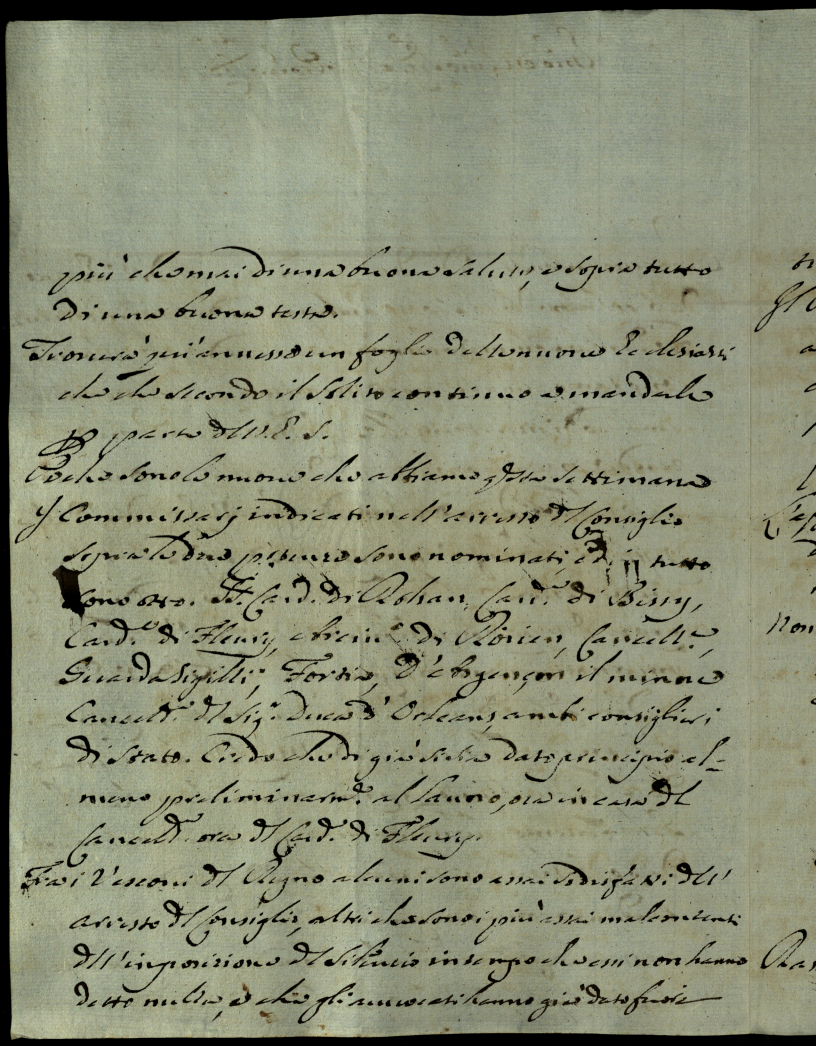 più che mai di una buona salute, e sopra tutto
di una buona testa.
Troverà qui annesso un foglio delle nuove Ecclesiasti
che che secondo il solito continuo a mandarle
parte di V. E. S.
Poche sono le nuove che abbiamo qsta settimana
I Commissarj indicati nell'arresto dl Consiglio
sopra le due sono nominati, ed in tutto
sono otto. Card. di Rohan, Card.le di Bissy,
Card.le di Fleury, Arciv.o di Roüen, Cancell.e,
Guarda Sigilli, Fortia, d'Argençon il minore
Cancell.e dl Sig.r Duca d'Orleans, ambi consiglieri
di Stato. Credo che di già siasi dato principio al=
meno preliminarm.e al lauoro, ora in casa dl
Cancell.e ora dl Card.e di Fleury.
Fra i Vescovi dl Regno alcuni sono assai sodisfatti dell'
arresto dl Consiglio, altri che sono i più assai malcontenti
dell'imposizione dl Silencio in tempo che essi non hanno
detto nulla, e che gli auuocati hanno già dato fuori